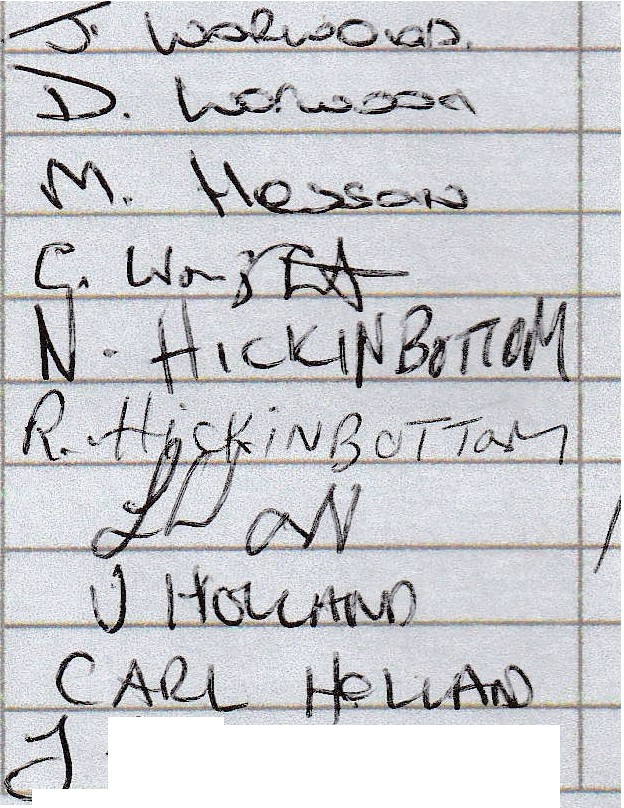 J. WORWOOD.
D. Worwood
M. Hesson
G.
N. HICKINBOTTOM
R. HiCKiNBOTTOM
J HOLLAND
CARL HOLLAND
J